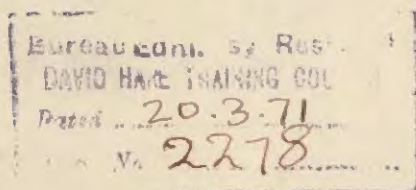 Bureau Ednl.
DAVID HARE TRAINING
Dated 20.3.71
No 2278